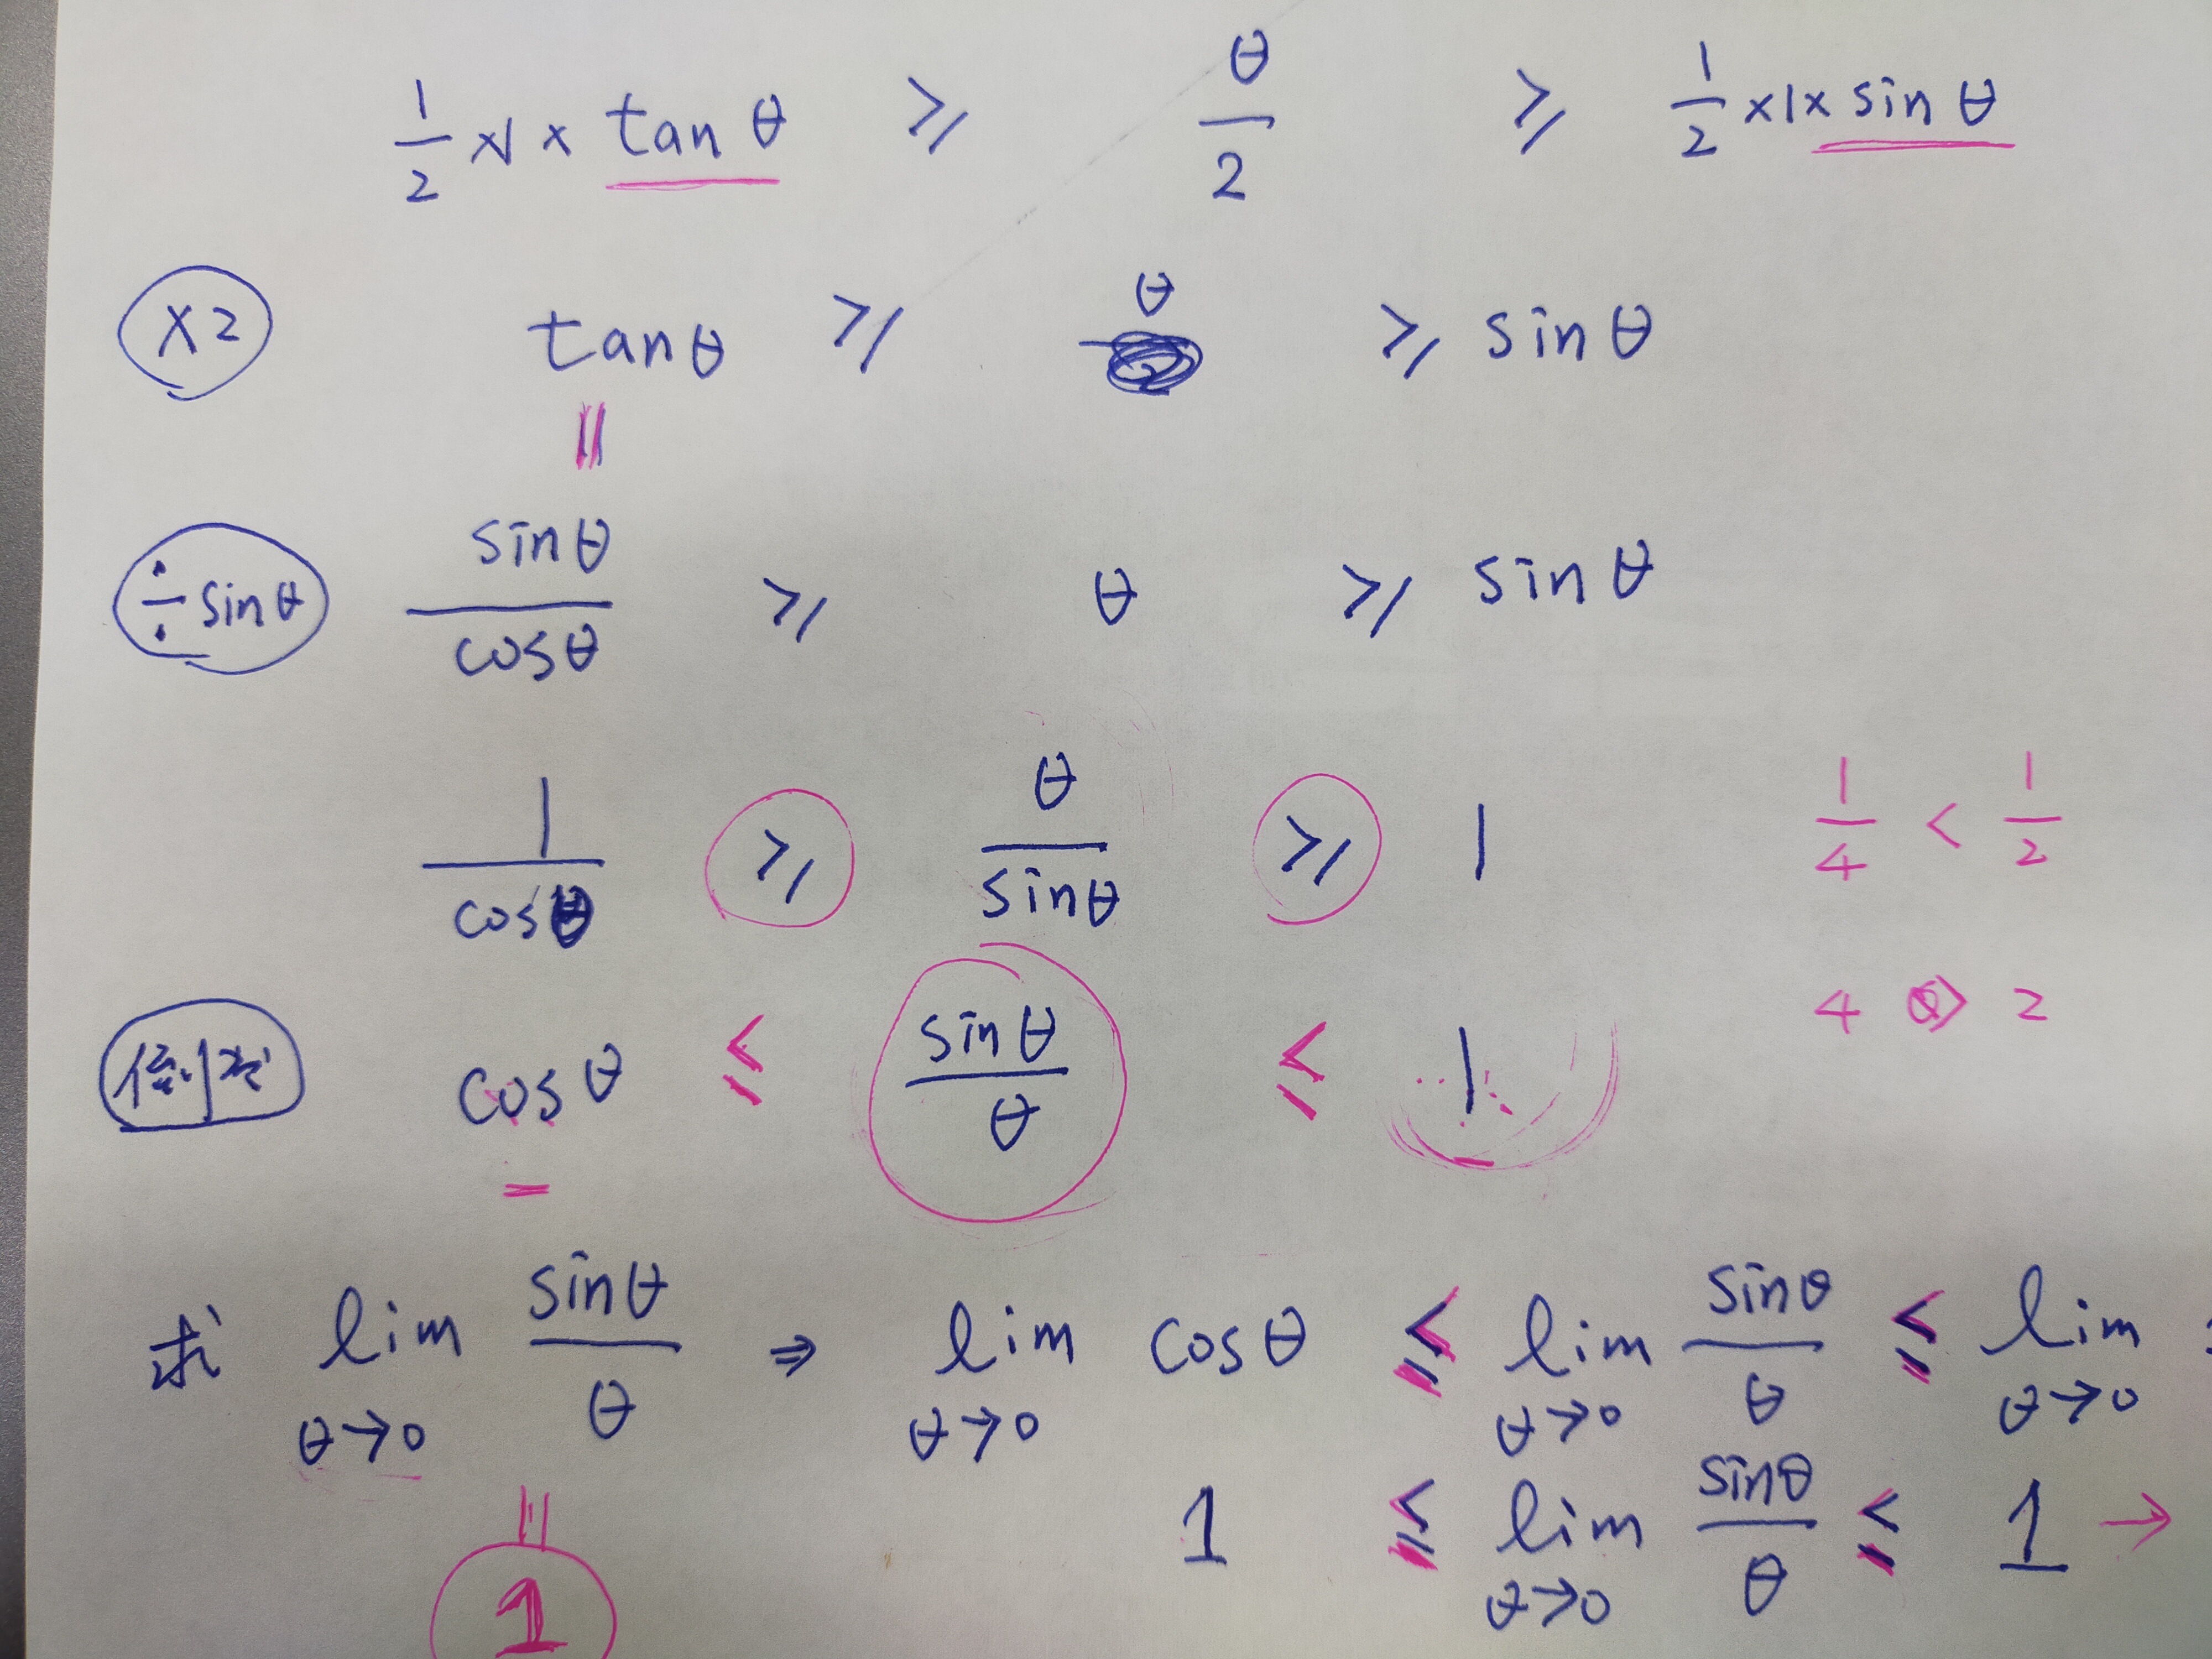 1/2 × 1 × tan θ ≥ θ/2 ≥ 1/2 × 1 × sin θ
×2 tan θ ≥ θ ≥ sin θ
||
÷ sin θ sin θ/cos θ ≥ θ ≥ sin θ
1/cos θ ≥ θ/sin θ ≥ 1 1/4 < 1/2
4 > 2
倒数 cos θ ≤ sin θ/θ ≤ 1
求 lim θ→0 sin θ/θ ⇒ lim θ→0 cos θ ≤ lim θ→0 sin θ/θ ≤ lim θ→0
|| 1 ≤ lim θ→0 sin θ/θ ≤ 1 →
1